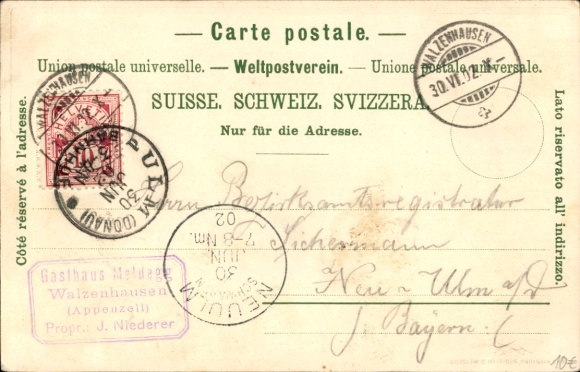 Carte postale.
Union postale universelle. — Weltpostverein. — Unione postale universale.
SUISSE. SCHWEIZ. SVIZZERA.
Nur für die Adresse.
Côté réservé à l'adresse.
Lato riservato all' indirizzo.
WALZENHAUSEN
30.VI.02.
WALZENHAUSEN
HELVETIA
10
ULM (DONAU)
BAHNHOF
30
JUN
NEUULM
30
JUN.
02
7-8 Nm.
Gasthaus Meldegg
Walzenhausen
(Appenzell)
Propr.: J. Niederer
Herrn Bezirksamtsregistratur
F. Sichermann
Neu-Ulm a/D
i. Bayern.
10€